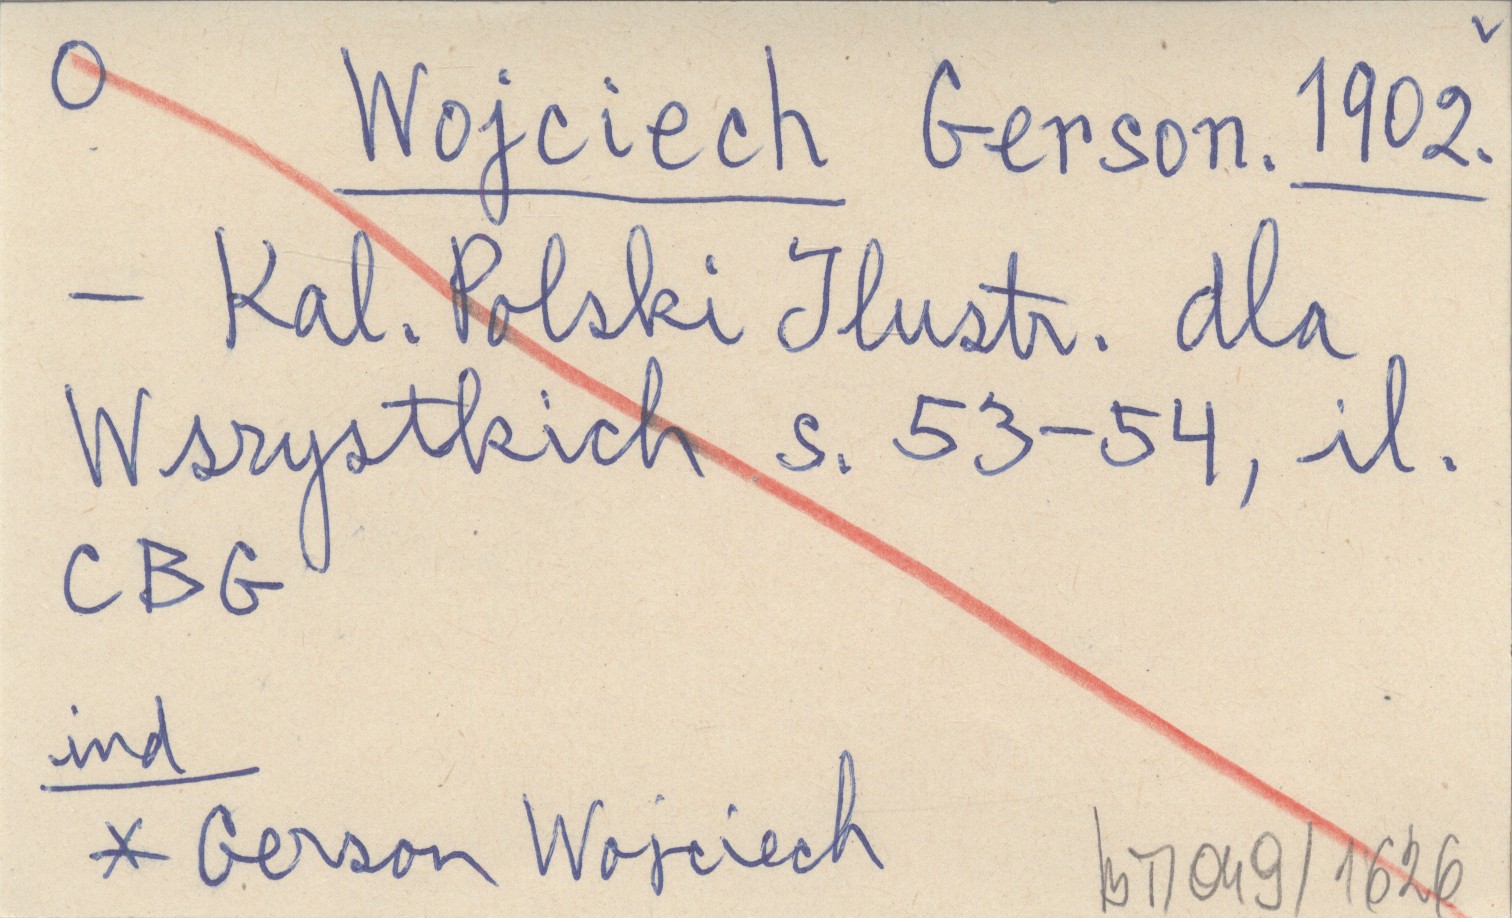 O Wojciech Gerson. 1902.
– Kal. Polski Ilustr. dla
Wszystkich s. 53–54, il.
CBG
ind
* Gerson Wojciech
049/1626